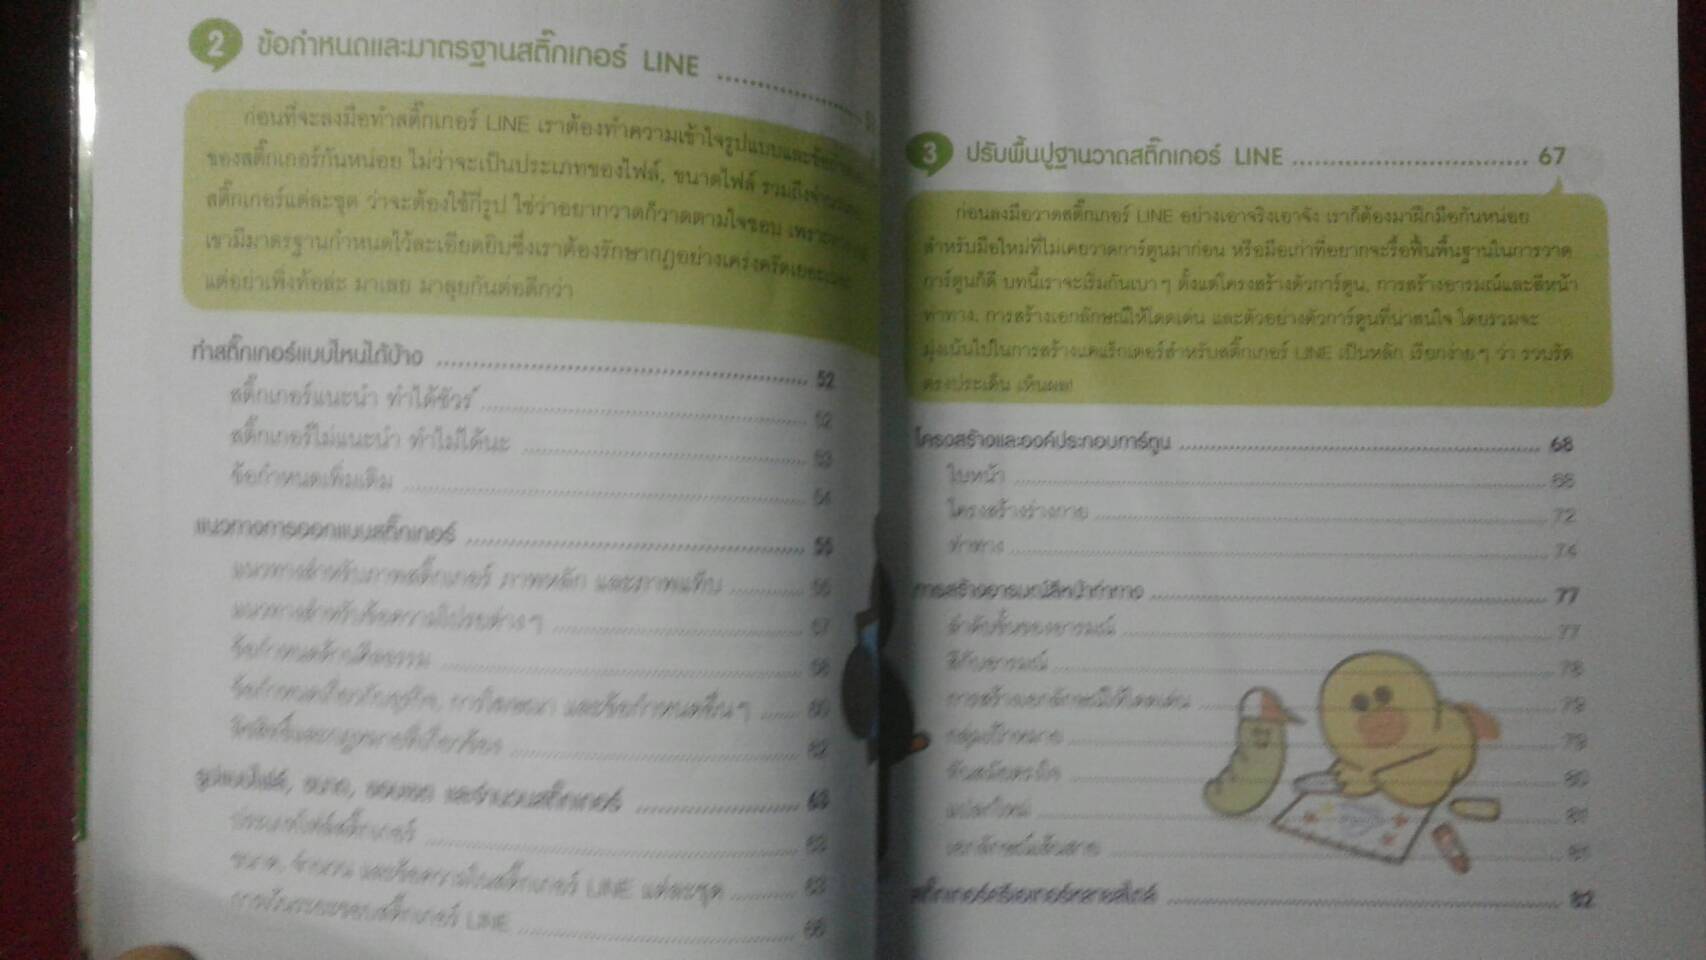 2 ข้อกำหนดและมาตรฐานสติ๊กเกอร์ LINE
ก่อนที่จะลงมือทำสติ๊กเกอร์ LINE เราต้องทำความเข้าใจรูปแบบและ
ของสติ๊กเกอร์กันหน่อย ไม่ว่าจะเป็นประเภทของไฟล์, ขนาดไฟล์ รวมถึง
สติ๊กเกอร์แต่ละชุด ว่าจะต้องใช้กี่รูป ใช่ว่าอยากวาดก็วาดตามใจชอบ เพราะ
เขามีมาตรฐานกำหนดไว้ละเอียดยิบซึ่งเราต้องรักษากฎอย่างเคร่งครัด
แต่อย่าเพิ่งท้อล่ะ มาเลย มาลุยกันต่อดีกว่า
ทำสติ๊กเกอร์แบบไหนได้บ้าง 52
สติ๊กเกอร์แนะนำ ทำได้ชัวร์ 52
สติ๊กเกอร์ไม่แนะนำ ทำไม่ได้นะ 53
ข้อกำหนดเพิ่มเติม 54
แนวทางการออกแบบสติ๊กเกอร์ 55
แนวทางสำหรับภาพสติ๊กเกอร์ ภาพหลัก และภาพแท็บ
แนวทางสำหรับข้อความโปรยต่างๆ 57
ข้อกำหนดด้านศีลธรรม 58
ข้อกำหนดเกี่ยวกับธุรกิจ, การโฆษณา และข้อกำหนดอื่นๆ 60
62
รูปแบบไฟล์, ขนาด, และจำนวนสติ๊กเกอร์ 63
ประเภทไฟล์สติ๊กเกอร์ 63
ขนาด, จำนวน และข้อความในสติ๊กเกอร์ LINE แต่ละชุด 63
การเว้นระยะขอบสติ๊กเกอร์ LINE
3 ปรับพื้นปูฐานวาดสติ๊กเกอร์ LINE 67
ก่อนลงมือวาดสติ๊กเกอร์ LINE อย่างเอาจริงเอาจัง เราก็ต้องมาฝึกมือกันหน่อย
สำหรับมือใหม่ที่ไม่เคยวาดการ์ตูนมาก่อน หรือมือเก่าที่อยากจะรื้อฟื้นพื้นฐานในการวาด
การ์ตูนก็ดี บทนี้เราจะเริ่มกันเบาๆ ตั้งแต่โครงสร้างตัวการ์ตูน, การสร้างอารมณ์และสีหน้า
ท่าทาง, การสร้างเอกลักษณ์ให้โดดเด่น และตัวอย่างตัวการ์ตูนที่น่าสนใจ โดยรวมจะ
มุ่งเน้นไปในการสร้างแคแร็กเตอร์สำหรับสติ๊กเกอร์ LINE เป็นหลัก เรียกง่ายๆ ว่า รวบรัด
ตรงประเด็น เห็นผล!
โครงสร้างและองค์ประกอบการ์ตูน 68
ใบหน้า 68
โครงสร้างร่างกาย 72
ท่าทาง 74
การสร้างอารมณ์สีหน้าท่าทาง 77
ลำดับขั้นของอารมณ์ 77
สีกับอารมณ์ 78
การสร้างเอกลักษณ์ให้โดดเด่น 79
กลุ่มเป้าหมาย 79
80
แปลกใหม่ 81
81
82